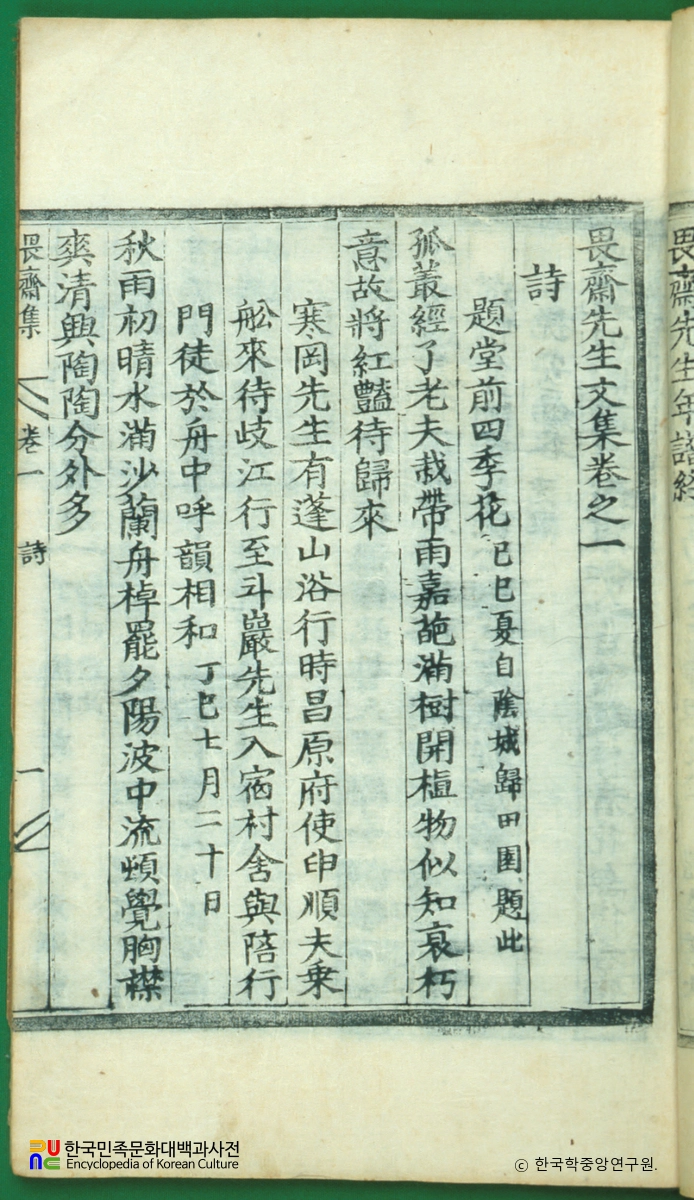 畏齋先生年譜終
畏齋先生文集卷之一
詩
題堂前四季花 己巳夏自陰城歸田園題此
孤叢經了老夫栽帶雨嘉葩滿樹開植物似知衰朽
意故將紅豔待歸來
寒岡先生有蓬山浴行時昌原府使申順夫乗
舩來待歧江行至斗巖先生入宿村舍與陪行
門徒於舟中呼韻相和 丁巳七月二十日
秋雨初晴水滿沙蘭舟棹罷夕陽波中流頓覺胸襟
爽清興陶陶分外多
畏齋集 卷一 詩 一
한국민족문화대백과사전
Encyclopedia of Korean Culture
© 한국학중앙연구원.